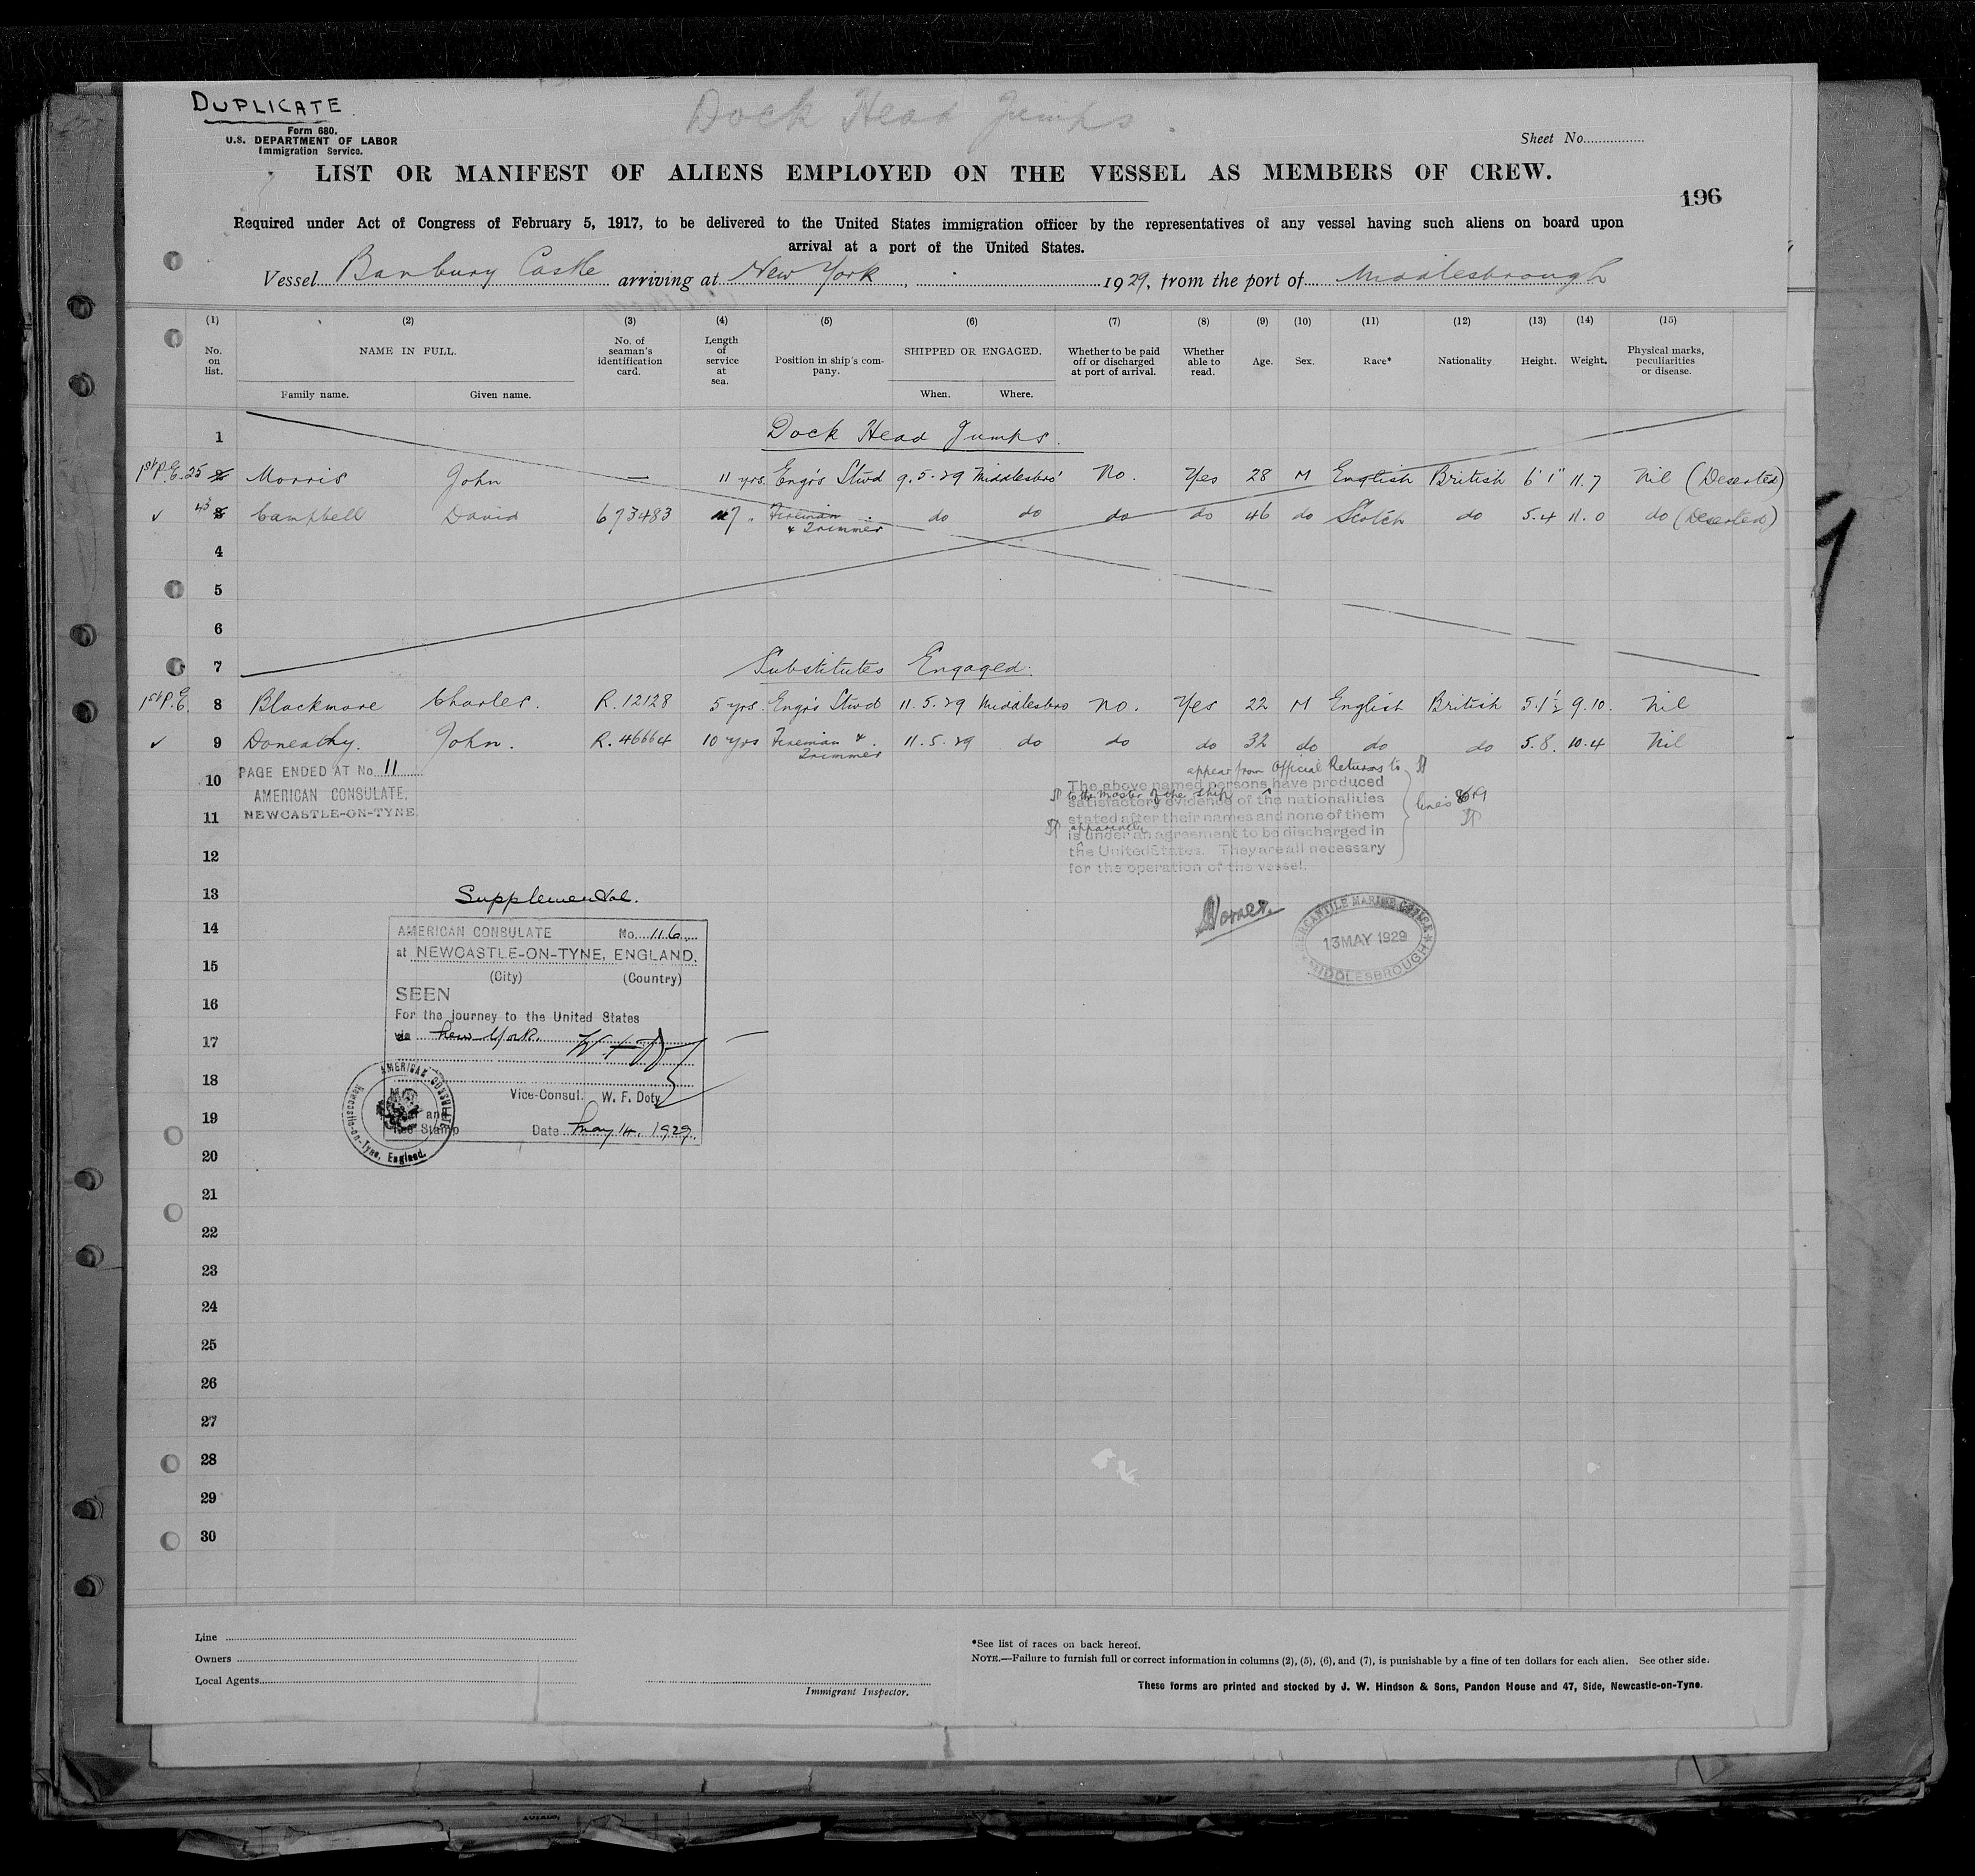 DUPLICATE
Dock Head Jumps
Form 680.
U.S. DEPARTMENT OF LABOR
Immigration Service.
Sheet No.
LIST OR MANIFEST OF ALIENS EMPLOYED ON THE VESSEL AS MEMBERS OF CREW.
196
Required under Act of Congress of February 5, 1917, to be delivered to the United States immigration officer by the representatives of any vessel having such aliens on board upon
arrival at a port of the United States.
Vessel Banbury Castle arriving at New York, 1929, from the port of Middlesbrough
(1) (2) (3) (4) (5) (6) (7) (8) (9) (10) (11) (12) (13) (14) (15)
No. on list. NAME IN FULL. No. of seaman's identification card. Length of service at sea. Position in ship's company. SHIPPED OR ENGAGED. Whether to be paid off or discharged at port of arrival. Whether able to read. Age. Sex. Race* Nationality Height. Weight. Physical marks, peculiarities or disease.
Family name. Given name. When. Where.
1 Dock Head Jumps.
1st P.E. 25 Morris John — 11 yrs. Engrs Stwd 9.5.29 Middlesbro' No. Yes 28 M English British 6' 1" 11.7 Nil (Deserted)
43 Campbell David 673483 7 Fireman & Trimmer do do do do 46 do Scotch do 5.4 11.0 do (Deserted)
4
5
6
7 Substitutes Engaged.
1st P.E. 8 Blackmore Charles. R.12128 5 yrs. Engrs Stwd 11.5.29 Middlesbro No. Yes 22 M English British 5.1½ 9.10. Nil
9 Doneathy. John. R.46664 10 yrs Fireman & Trimmer 11.5.29 do do do 32 do do do 5.8. 10.4 Nil
10 PAGE ENDED AT No. 11
AMERICAN CONSULATE,
11 NEWCASTLE-ON-TYNE
appear from Official Returns to
The above named persons have produced
to the Master of the Ship
satisfactory evidence of the nationalities
lines 8 & 9
stated after their names and none of them
apparently
is under an agreement to be discharged in
the United States. They are all necessary
for the operation of the vessel.
12
13 Supplemental.
14 AMERICAN CONSULATE No. 116
at NEWCASTLE-ON-TYNE, ENGLAND.
15 (City) (Country)
SEEN
16 For the journey to the United States
17 via New York.
18 Vice-Consul. W. F. Doty
19 Date May 14, 1929.
AMERICAN CONSULATE
Newcastle-on-Tyne, England.
MERCANTILE MARINE OFFICE
13 MAY 1929
MIDDLESBROUGH
20
21
22
23
24
25
26
27
28
29
30
Line
Owners
Local Agents
Immigrant Inspector.
*See list of races on back hereof.
NOTE.—Failure to furnish full or correct information in columns (2), (5), (6), and (7), is punishable by a fine of ten dollars for each alien. See other side.
These forms are printed and stocked by J. W. Hindson & Sons, Pandon House and 47, Side, Newcastle-on-Tyne.